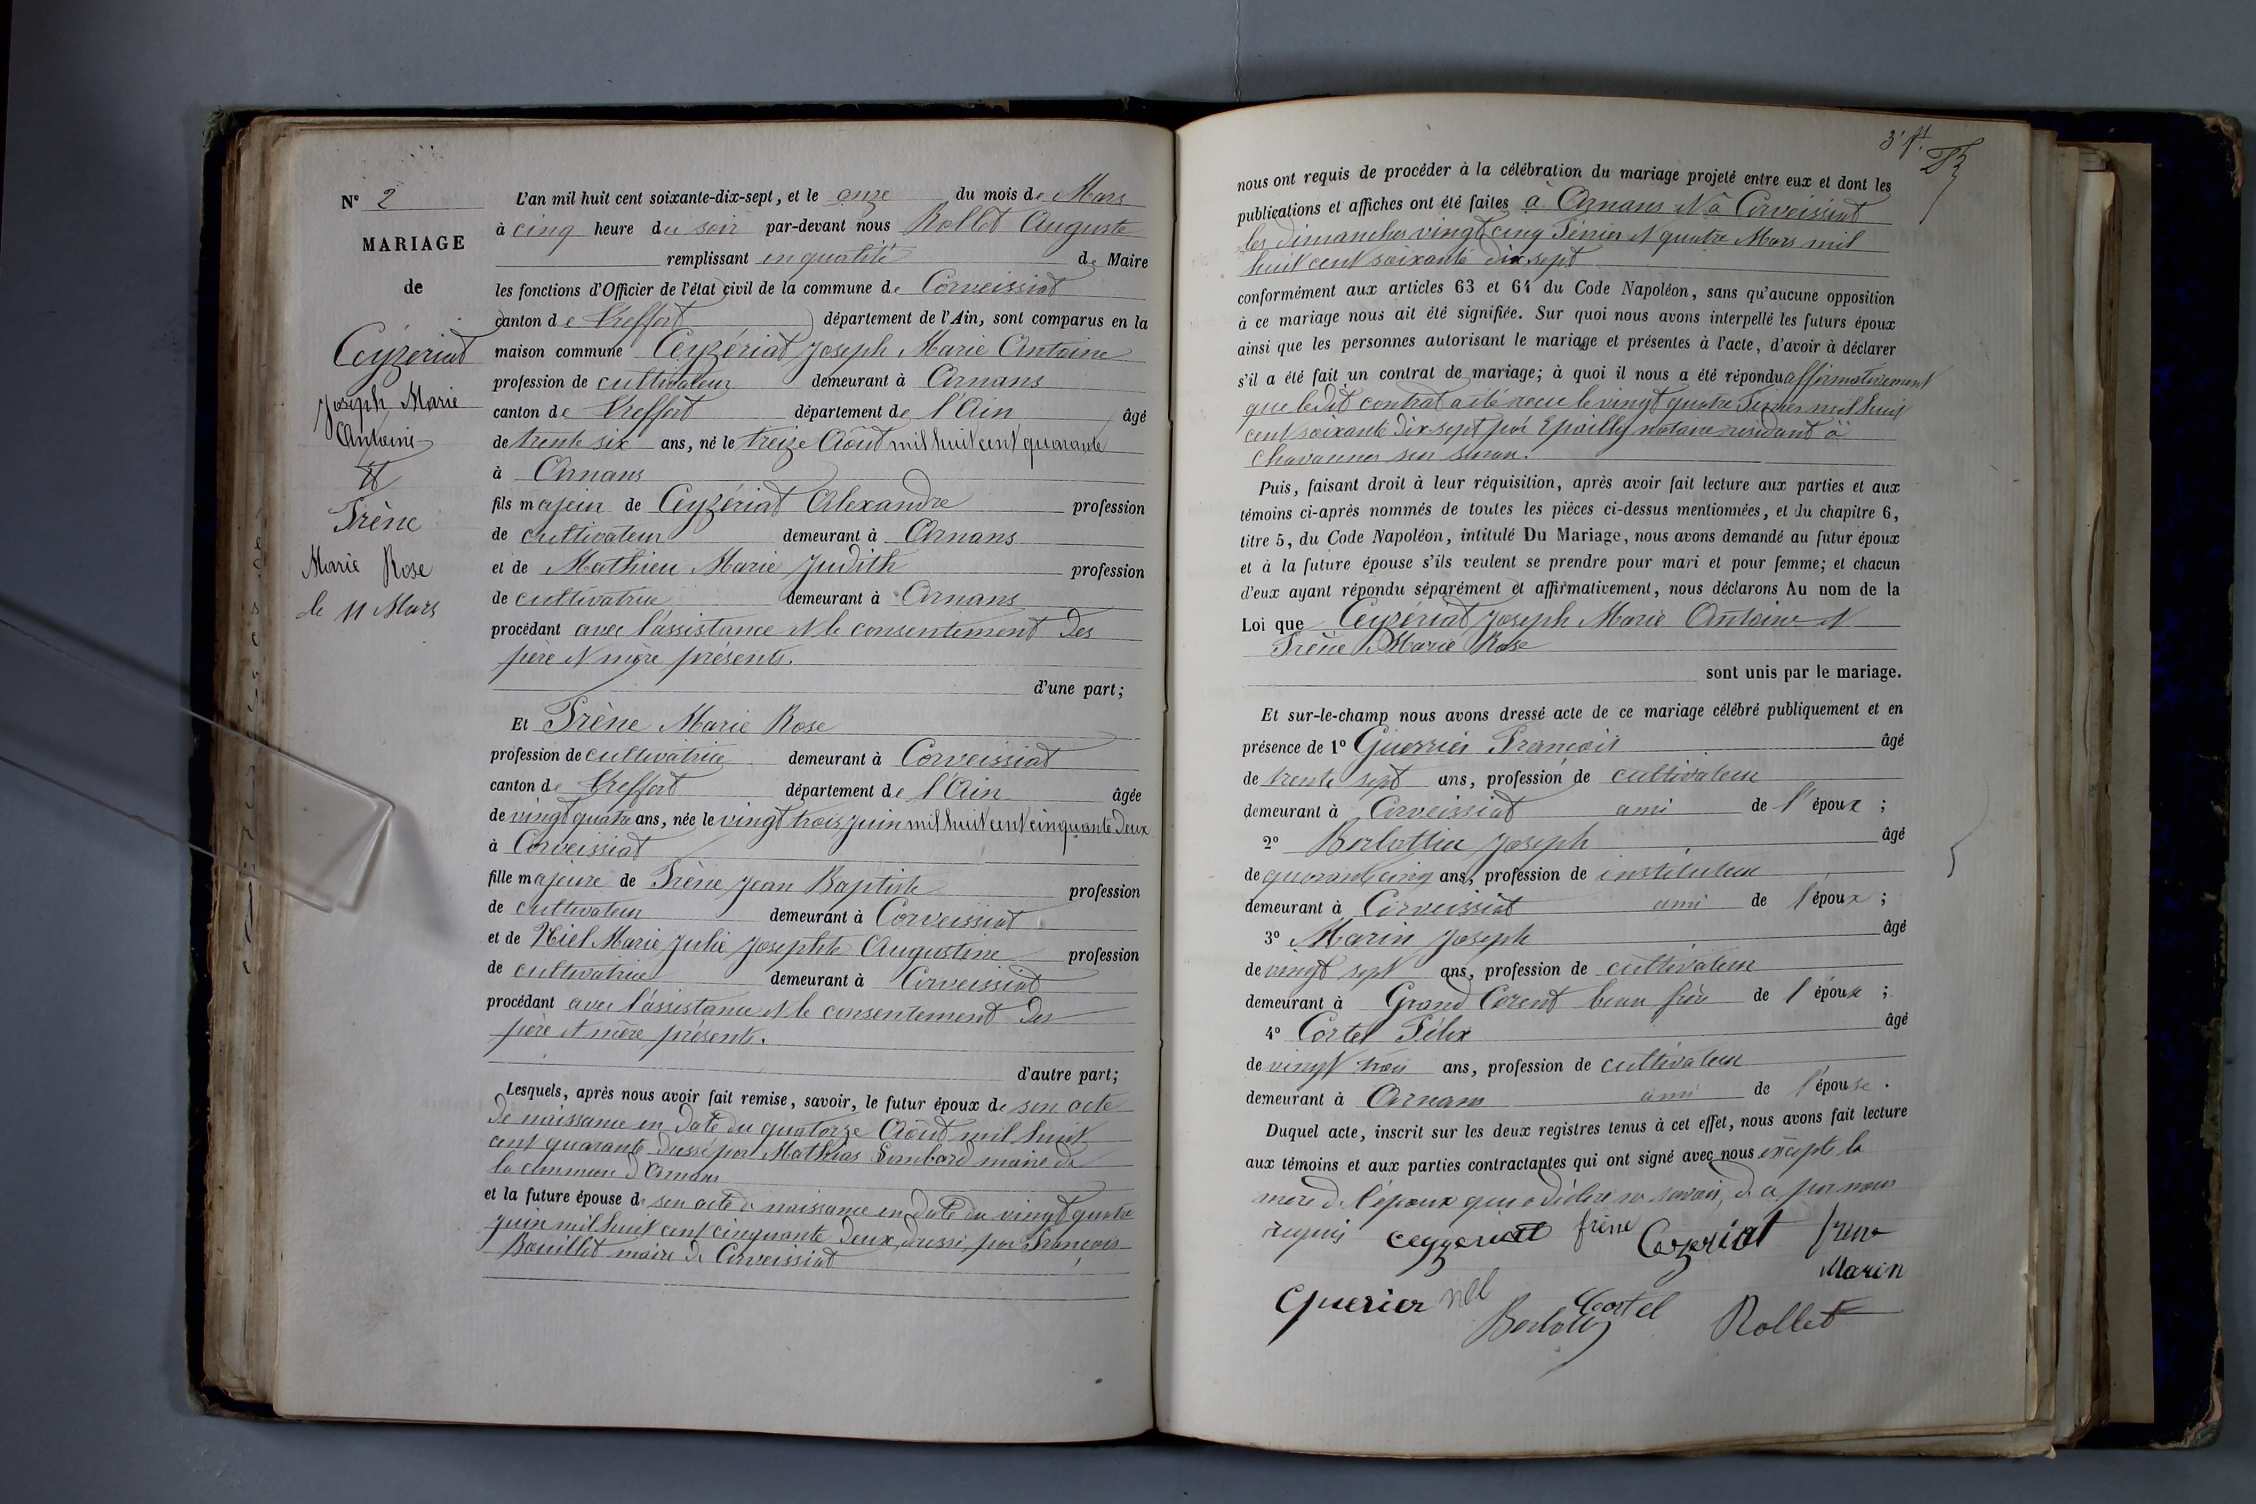 N° 2
MARIAGE
de
Ceyzériat
Joseph Marie
Antoine
et
Frène
Marie Rose
le 11 Mars
L'an mil huit cent soixante-dix-sept, et le onze du mois de Mars
à cinq heure du soir par-devant nous Rollet Auguste
remplissant en qualité de Maire
les fonctions d'Officier de l'état civil de la commune de Corveissiat
canton de Treffort département de l'Ain, sont comparus en la
maison commune Ceyzériat Joseph Marie Antoine
profession de cultivateur demeurant à Arnans
canton de Treffort département de l'Ain âgé
de trente six ans, né le treize Août mil huit cent quarante
à Arnans
fils majeur de Ceyzériat Alexandre profession
de cultivateur demeurant à Arnans
et de Mathieu Marie Judith profession
de cultivatrice demeurant à Arnans
procédant avec l'assistance et le consentement des
père et mère présents.
d'une part;
Et Frène Marie Rose
profession de cultivatrice demeurant à Corveissiat
canton de Treffort département de l'Ain âgée
de vingt quatre ans, née le vingt trois juin mil huit cent cinquante deux
à Corveissiat
fille majeure de Frène Jean Baptiste profession
de cultivateur demeurant à Corveissiat
et de Niel Marie Julie Josephte Augustine profession
de cultivatrice demeurant à Corveissiat
procédant avec l'assistance et le consentement des
père et mère présents.
d'autre part;
Lesquels, après nous avoir fait remise, savoir, le futur époux de son acte
de naissance en date du quatorze Août mil huit
cent quarante dressé par Mathias maire de
la commune d'Arnans
et la future épouse de son acte de naissance en date du vingt quatre
juin mil huit cent cinquante deux, dressé par François
Bouillet maire de Corveissiat
3e ft
nous ont requis de procéder à la célébration du mariage projeté entre eux et dont les
publications et affiches ont été faites à Arnans et à Corveissiat
les dimanches vingt cinq Février et quatre Mars mil
huit cent soixante dix sept
conformément aux articles 63 et 64 du Code Napoléon, sans qu'aucune opposition
à ce mariage nous ait été signifiée. Sur quoi nous avons interpellé les futurs époux
ainsi que les personnes autorisant le mariage et présentes à l'acte, d'avoir à déclarer
s'il a été fait un contrat de mariage; à quoi il nous a été répondu affirmativement
que le dit contrat a été reçu le vingt quatre Février mil huit
cent soixante dix sept par Epailly notaire résidant à
Chavannes sur Suran.
Puis, faisant droit à leur réquisition, après avoir fait lecture aux parties et aux
témoins ci-après nommés de toutes les pièces ci-dessus mentionnées, et du chapitre 6,
titre 5, du Code Napoléon, intitulé Du Mariage, nous avons demandé au futur époux
et à la future épouse s'ils veulent se prendre pour mari et pour femme; et chacun
d'eux ayant répondu séparément et affirmativement, nous déclarons Au nom de la
Loi que Ceyzériat Joseph Marie Antoine et
Frène Marie Rose
sont unis par le mariage.
Et sur-le-champ nous avons dressé acte de ce mariage célébré publiquement et en
présence de 1° Guerrier François âgé
de trente sept ans, profession de cultivateur
demeurant à Corveissiat ami de l'époux ;
2° Joseph âgé
de quarante cinq ans, profession de instituteur
demeurant à Corveissiat ami de l'époux ;
3° Marin Joseph âgé
de vingt sept ans, profession de cultivateur
demeurant à Grand Corent beau frère de l'époux ;
4° Cortel Félix âgé
de vingt trois ans, profession de cultivateur
demeurant à Arnans ami de l'épouse.
Duquel acte, inscrit sur les deux registres tenus à cet effet, nous avons fait lecture
aux témoins et aux parties contractantes qui ont signé avec nous excepté la
mère de l'époux qui a déclaré ne savoir, de ce par nous
requis ceyzeriat frène Ceyzeriat frene
Marin
Guerier niel
Cortel
Rollet